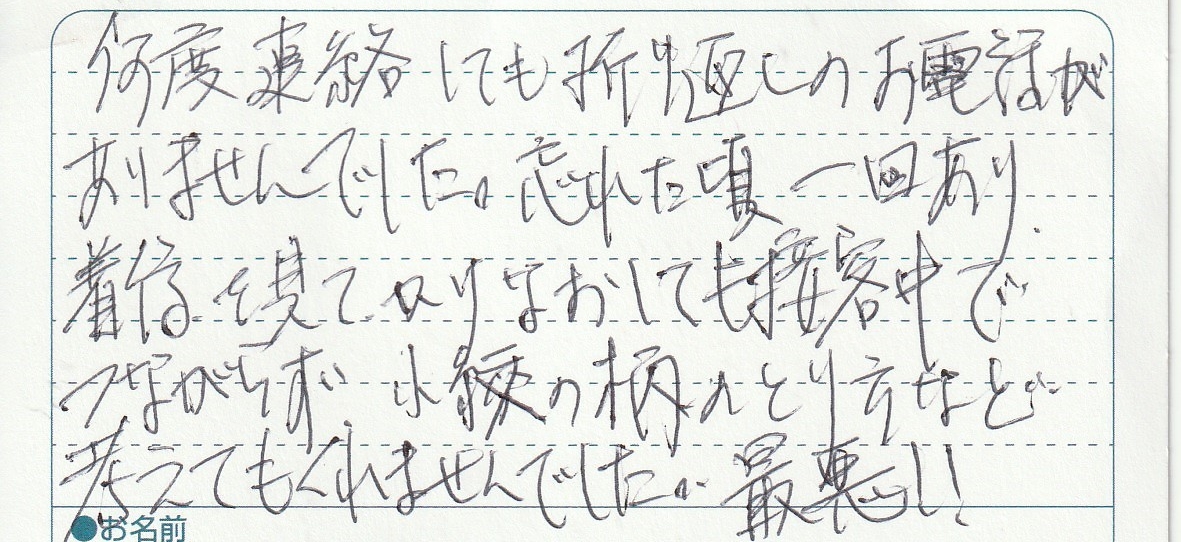 何度連絡しても折り返しのお電話が
ありませんでした。忘れた頃一回あり
着信を見てかけなおしても接客中で
つながらず 小縁の柄のとり方など
考えてもくれませんでした。最悪!!
●お名前